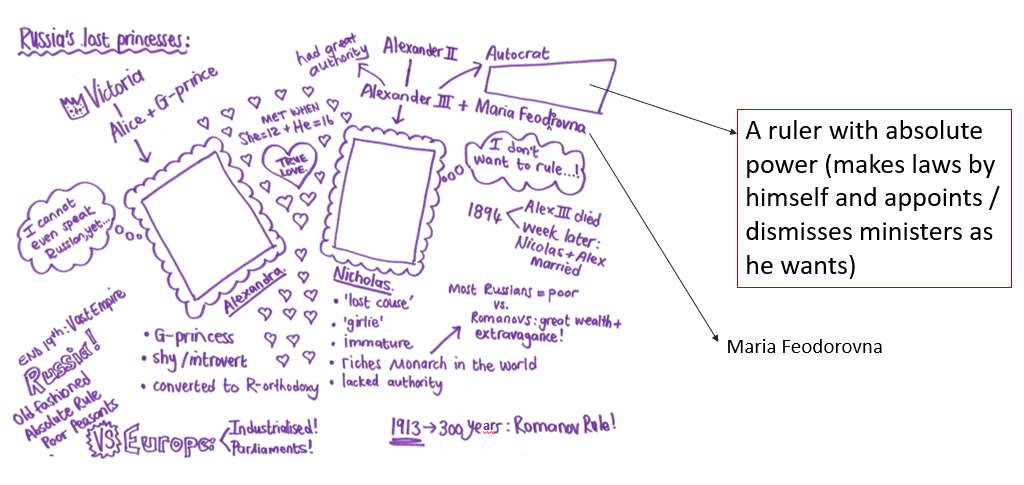 Russia's last princesses:
Victoria
Alice + G-prince
had great
authority
Alexander II
Autocrat
Alexander III + Maria Feodorovna
MET WHEN
She=12 + He=16
TRUE
LOVE.
I don't
want to rule...!
I cannot
even speak
Russian, yet...
1894
Alex III died
Week later:
Nicolas + Alex
Married
Alexandra.
Nicholas.
• G-princess
• shy/introvert
• converted to R-orthodoxy
• 'lost couse'
• 'girlie'
• immature
• riches Monarch in the world
• lacked authority
Most Russians = poor
vs.
Romanovs: great wealth +
extravagance!
END 19th: Vast Empire
Russia!
Old fashioned
Absolute Rule
Poor Peasants
VS Europe:
Industrialised!
Parliaments!
1913 → 300 years: Romanov Rule!
A ruler with absolute
power (makes laws by
himself and appoints /
dismisses ministers as
he wants)
Maria Feodorovna